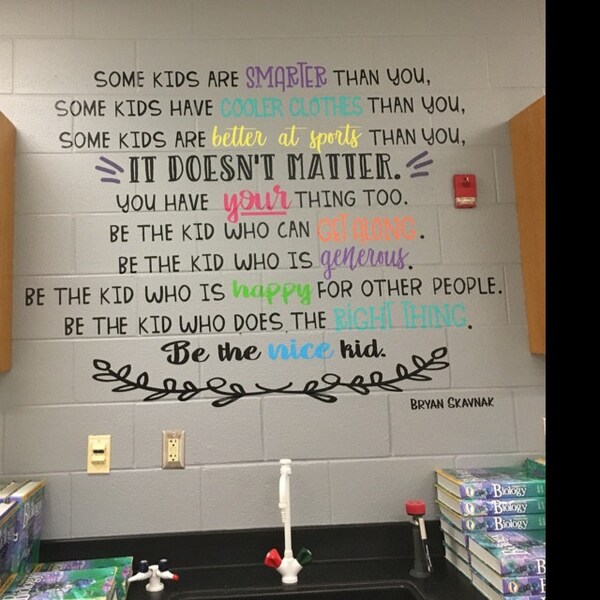 SOME KIDS ARE SMARTER THAN YOU,
SOME KIDS HAVE COOLER CLOTHES THAN YOU,
SOME KIDS ARE better at sports THAN YOU,
IT DOESN'T MATTER.
YOU HAVE your THING TOO.
BE THE KID WHO CAN GET ALONG.
BE THE KID WHO IS generous.
BE THE KID WHO IS happy FOR OTHER PEOPLE.
BE THE KID WHO DOES THE RIGHT THING.
Be the nice kid.
BRYAN SKAVNAK
Biology
Biology
Biology